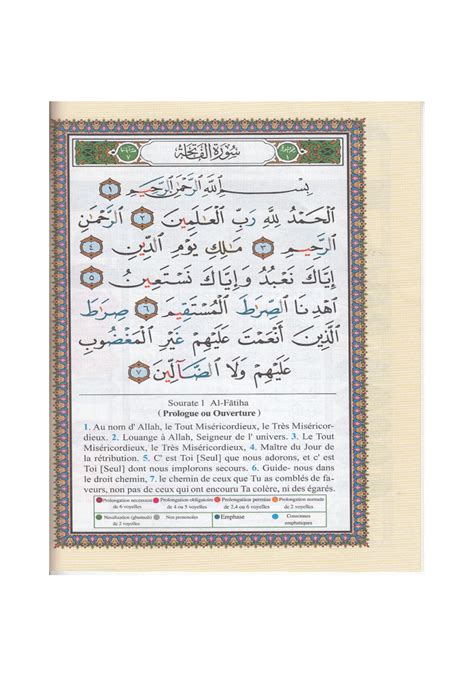 سورة الفاتحة
بِسْمِ ٱللَّهِ ٱلرَّحْمَٰنِ ٱلرَّحِيمِ ١
ٱلْحَمْدُ لِلَّهِ رَبِّ ٱلْعَٰلَمِينَ ٢ ٱلرَّحْمَٰنِ
ٱلرَّحِيمِ ٣ مَٰلِكِ يَوْمِ ٱلدِّينِ ٤
إِيَّاكَ نَعْبُدُ وَإِيَّاكَ نَسْتَعِينُ ٥
ٱهْدِنَا ٱلصِّرَٰطَ ٱلْمُسْتَقِيمَ ٦ صِرَٰطَ
ٱلَّذِينَ أَنْعَمْتَ عَلَيْهِمْ غَيْرِ ٱلْمَغْضُوبِ
عَلَيْهِمْ وَلَا ٱلضَّآلِّينَ ٧
Sourate 1 Al-Fātiha
( Prologue ou Ouverture )
1. Au nom d' Allah, le Tout Miséricordieux, le Très Miséricor-
dieux. 2. Louange à Allah, Seigneur de l' univers. 3. Le Tout
Miséricordieux, le Très Miséricordieux, 4. Maître du Jour de
la rétribution. 5. C' est Toi [Seul] que nous adorons, et c' est
Toi [Seul] dont nous implorons secours. 6. Guide- nous dans
le droit chemin, 7. le chemin de ceux que Tu as comblés de fa-
veurs, non pas de ceux qui ont encouru Ta colère, ni des égarés.
Prolongation nécessaire Prolongation obligatoire Prolongation permise Prolongation normale
de 6 voyelles de 4 ou 5 voyelles de 2,4 ou 6 voyelles de 2 voyelles
Nasalisation (ghunnah) Non prononcées Emphase Consonnes
de 2 voyelles emphatiques